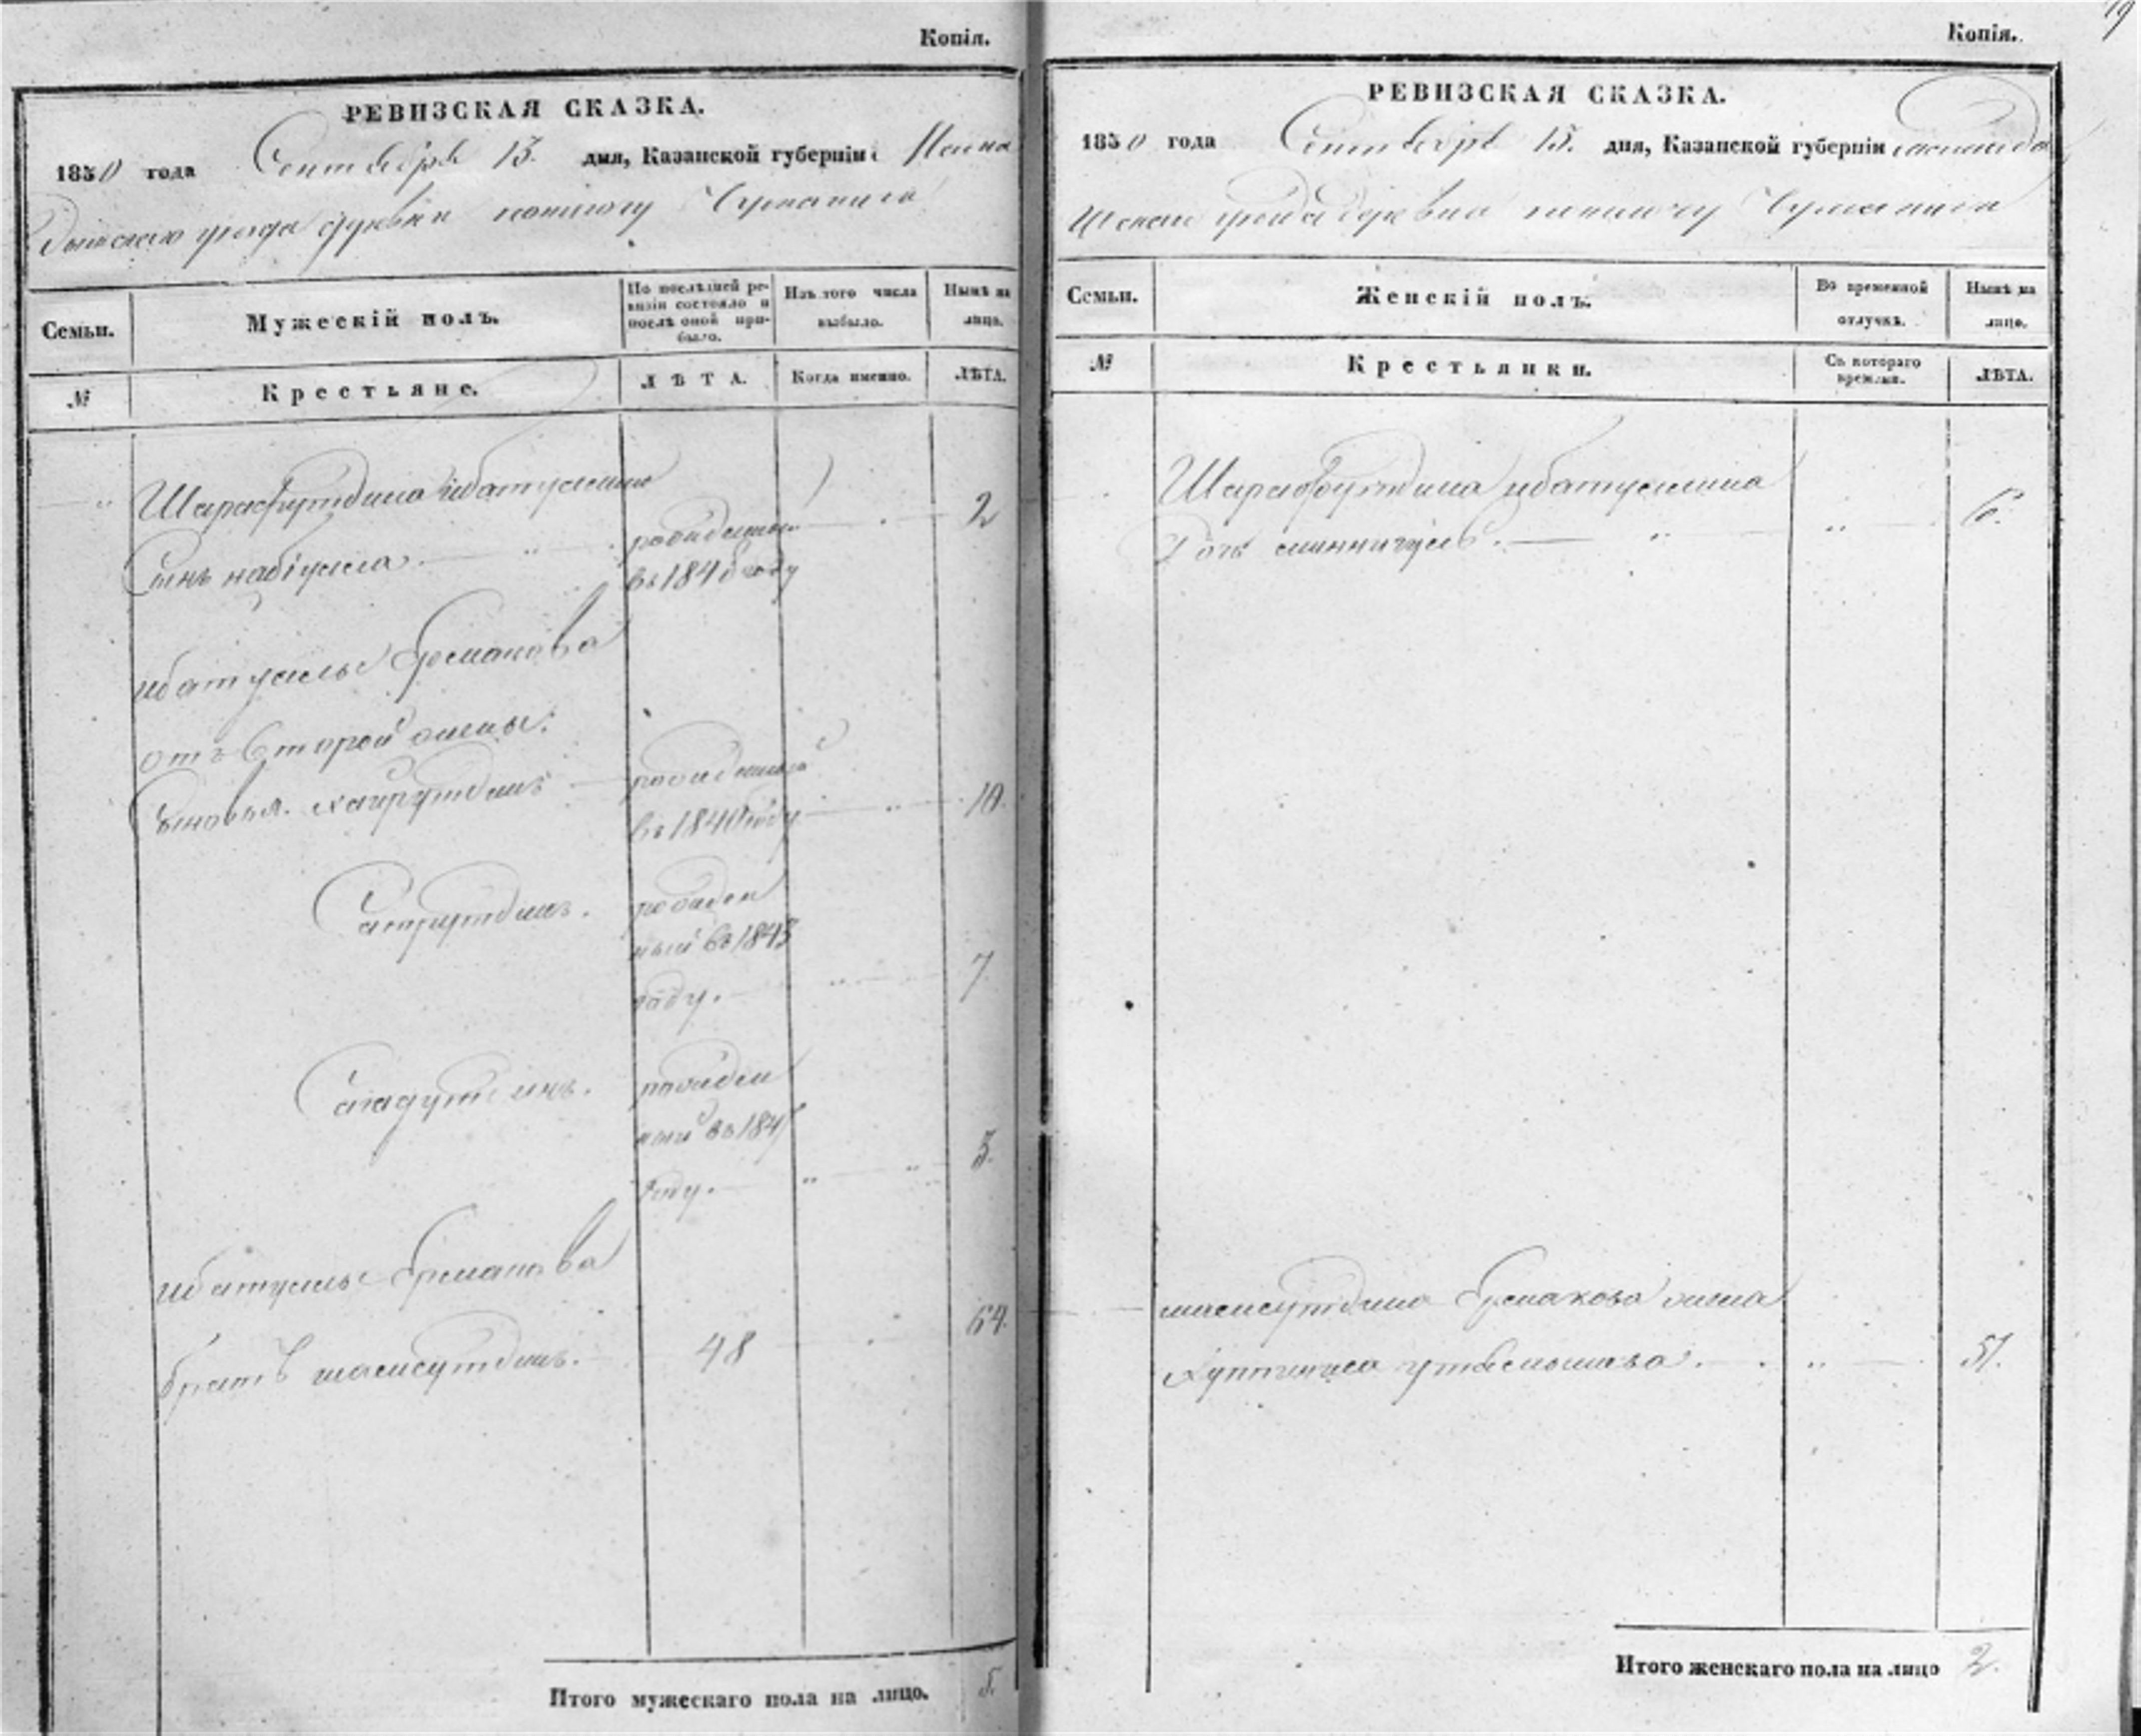 Копія.
РЕВИЗСКАЯ СКАЗКА.
1850 года Сентября 13. дня, Казанской губерніи
уѣзда деревни
Семьи.
Мужескій полъ.
По послѣдней ревизіи состояло и послѣ оной прибыло.
Изъ того числа выбыло.
Нынѣ на лицо.
№
Крестьяне.
ЛѢТА.
Когда именно.
ЛѢТА.
Шарафутдина ибатуллина
Сынъ набіулла. рожденный 2
въ 1848 году
ибатуллы Ермакова
отъ второй жены:
Сыновья. хайрутдинъ рожденный
въ 1840 году 10.
рожден
ный въ 1843
году. 7.
рожден
ный въ 1847
году. 3.
ибатуллы Ермакова
братъ шамсутдинъ. 48 64.
Итого мужескаго пола на лицо. 5.
Копія.
19
РЕВИЗСКАЯ СКАЗКА.
1850 года Сентября 13. дня, Казанской губерніи
уѣзда деревни
Семьи.
Женскій полъ.
Во временной отлучкѣ.
Нынѣ на лицо.
№
Крестьянки.
Съ котораго времени.
ЛѢТА.
Шарафутдина ибатуллина
Дочь 6.
шамсутдина Ермакова жена
51.
Итого женскаго пола на лицо 2.